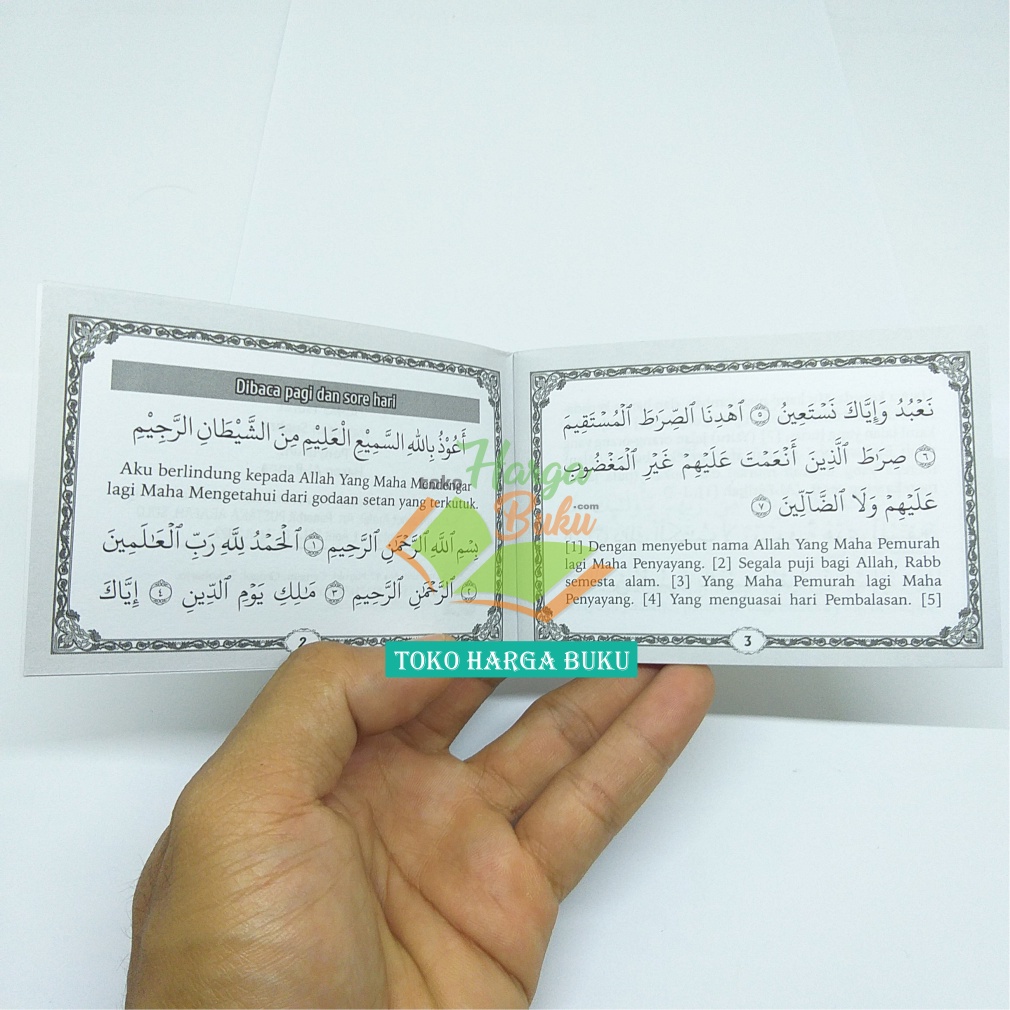 Dibaca pagi dan sore hari
أَعُوْذُ بِاللهِ السَّمِيْعِ الْعَلِيْمِ مِنَ الشَّيْطَانِ الرَّجِيْمِ
Aku berlindung kepada Allah Yang Maha Mendengar
lagi Maha Mengetahui dari godaan setan yang terkutuk.
بِسْمِ ٱللَّهِ ٱلرَّحْمَٰنِ ٱلرَّحِيمِ ۝١ ٱلْحَمْدُ لِلَّهِ رَبِّ ٱلْعَٰلَمِينَ
۝٢ ٱلرَّحْمَٰنِ ٱلرَّحِيمِ ۝٣ مَٰلِكِ يَوْمِ ٱلدِّينِ ۝٤ إِيَّاكَ
2
نَعْبُدُ وَإِيَّاكَ نَسْتَعِينُ ۝٥ ٱهْدِنَا ٱلصِّرَٰطَ ٱلْمُسْتَقِيمَ
۝٦ صِرَٰطَ ٱلَّذِينَ أَنْعَمْتَ عَلَيْهِمْ غَيْرِ ٱلْمَغْضُوبِ
عَلَيْهِمْ وَلَا ٱلضَّآلِّينَ ۝٧
[1] Dengan menyebut nama Allah Yang Maha Pemurah
lagi Maha Penyayang. [2] Segala puji bagi Allah, Rabb
semesta alam. [3] Yang Maha Pemurah lagi Maha
Penyayang. [4] Yang menguasai hari Pembalasan. [5]
3
Toko
Harga
Buku.com
TOKO HARGA BUKU